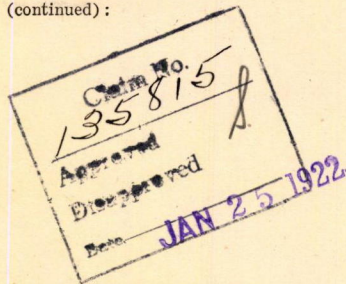 (continued):
Claim No.
135815
Approved
Disapproved
Date JAN 25 1922